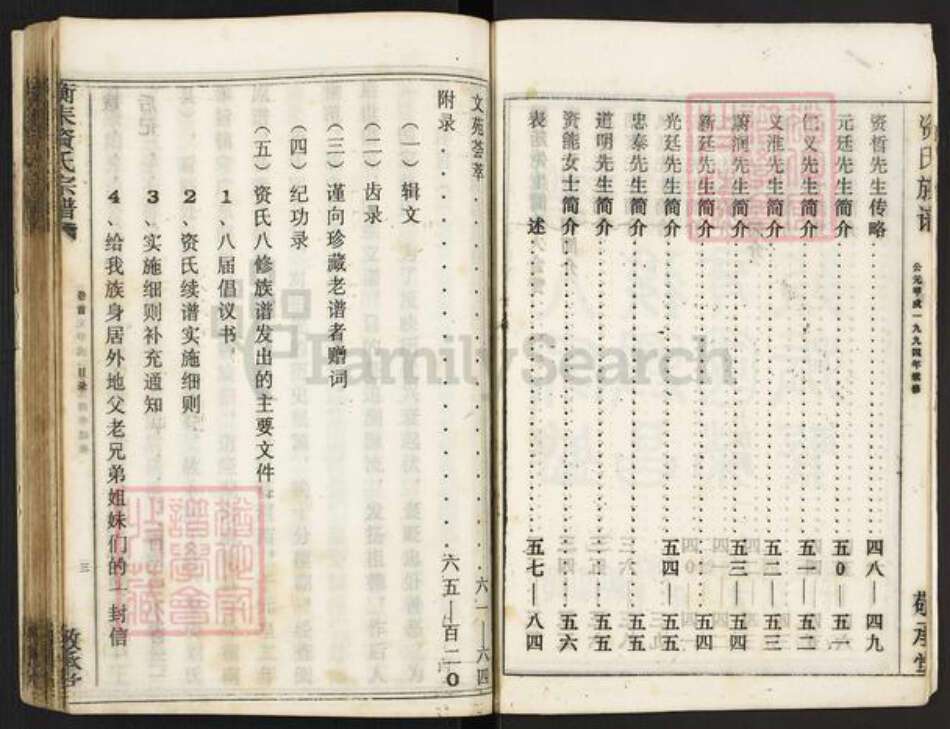 资氏族谱
公元甲戌一九九四年续修
敬承堂
资哲先生传略 四八——四九
元廷先生简介 五0——五一
仁义先生简介 五一——五二
义淮先生简介 五二——五三
蔚润先生简介 五三——五四
新廷先生简介 五四
光廷先生简介 五四——五五
忠泰先生简介 五五
道明先生简介 五五
资能女士简介 五六
表 述 五七——八四
文苑荟萃 六一——六四
附录 六五—百二0
(一)辑文
(二)齿录
(三)谨向珍藏老谱者赠词
(四)纪功录
(五)资氏八修族谱发出的主要文件
1、八届倡议书
2、资氏续谱实施细则
3、实施细则补充通知
4、给我族身居外地父老兄弟姐妹们的一封信
卷首
目录
三
资氏宗谱
FamilySearch